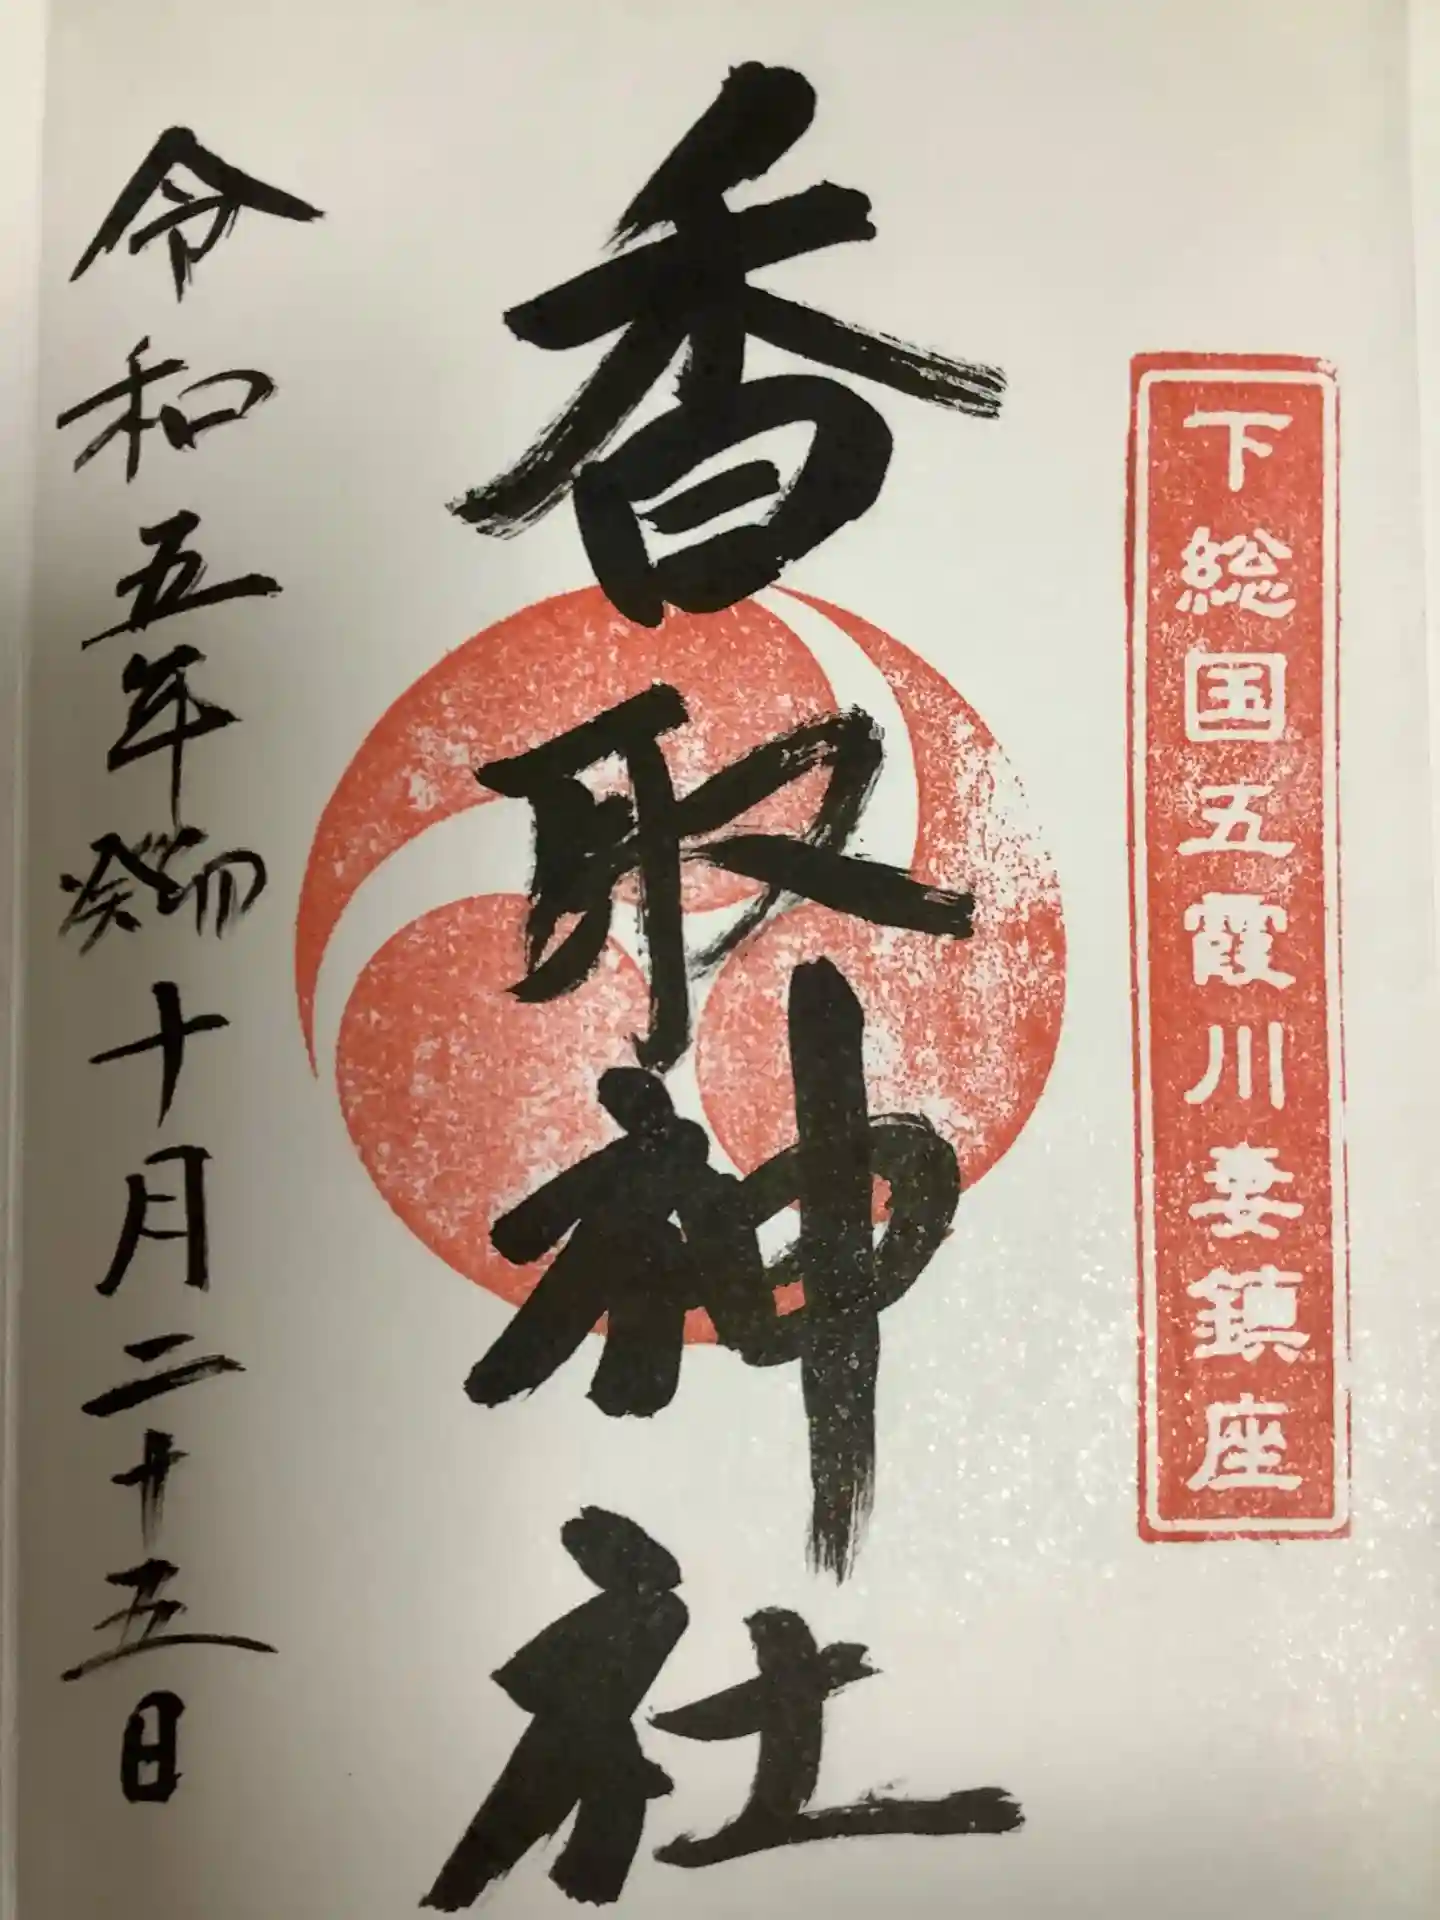 下総国五霞川妻鎮座
香取神社
令和五年癸卯十月二十五日